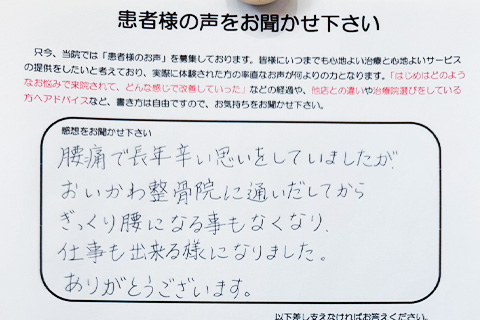 患者様の声をお聞かせ下さい
只今、当院では「患者様のお声」を募集しております。皆様にいつまでも心地よい治療と心地よいサービス
の提供をしたいと考えており、実際に体験された方の率直なお声が何よりの力となります。「はじめはどのよう
なお悩みで来院されて、どんな感じで改善していった」などの経過や、他店との違いや治療院選びをしている
方へアドバイスなど、書き方は自由ですので、お気持ちをお聞かせ下さい。
感想をお聞かせ下さい
腰痛で長年辛い思いをしていましたが、
おいかわ整骨院に通いだしてから
ぎっくり腰になる事もなくなり、
仕事も出来る様になりました。
ありがとうございます。
以下差し支えなければお答えください。